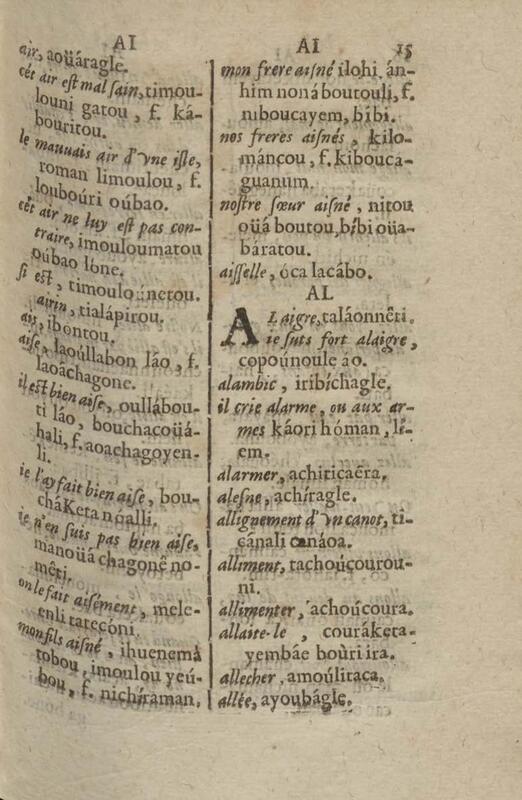 AI
air, aoüáragle.
cét air est mal sain, timou-
louni gatou, f. ká-
bouritou.
le mauuais air d'vne isle,
roman limoulou, f.
louboúri oúbao.
cét air ne luy est pas con-
traire, imouloumatou
oúbao lóne.
si est, timoulo únetou.
airin, tialápirou.
ais, ibontou.
aise, laoúllabon láo, f.
laoáchagone.
il est bien aise, oullábou-
ti láo, bouchacoüá-
hali, f. aoachagoyen-
li.
ie l'ay fait bien aise, bou-
cháKeta nóalli.
ie n'en suis pas bien aise,
manoüá chagonê no-
mêti.
on le fait aisément, mele-
enli tateconi.
mon fils aisné, ihuenemá
tobou, imoulou yeú-
bou, f. nichíraman.
AI 15
mon frere aisné ilohi. án-
him noná boutouli, f.
niboucayem, bíbi.
nos freres aisnés, kilo-
máncou, f. kibouca-
guanum.
nostre sœur aisné, nitou
oüá boutou, bíbi oüa-
báratou.
aisselle, óca lacábo.
AL
ALaigre, taláonnêti.
ie suis fort alaigre,
copoúnoule áo.
alambic, iribíchagle.
il crie alarme, ou aux ar-
mes káori hóman, lí-
em.
alarmer, achiricaêra.
alesne, achíragle.
allignement d'vn canot, ti-
cánali canáoa.
alliment, tachoúcourou-
ni.
allimenter, achoúcoura.
allaite-le, couráketa-
yembáe boùri ira.
allecher, amoúlitaca.
allée, ayoubágle.